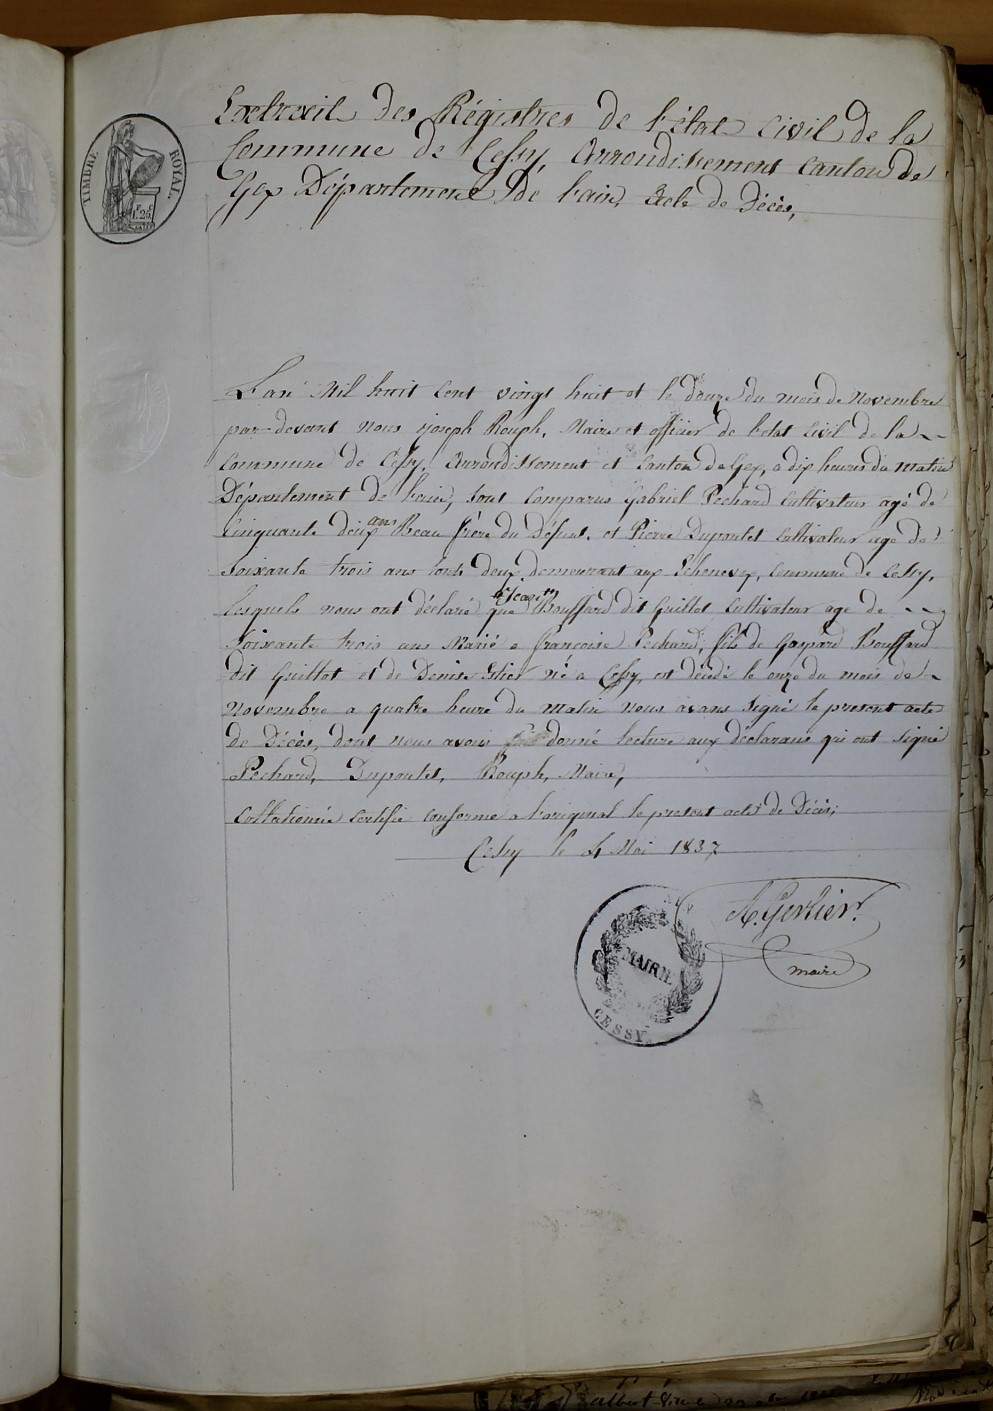 TIMBRE ROYAL
1f 25c
Extrait des Régistres de l'état Civil de la
Commune de Cessy, Arrondissement Canton de
Gex Département de l'ain, Acte de Décès,
L'an Mil huit Cent vingt huit et le Douze du mois de Novembre
par-devant nous joseph Rouph, Maire et officier de l'état Civil de la
Commune de Cessy, Arrondissement et Canton de Gex, a dix heures du matin
Département de l'ain, sont Comparus Gabriel Pechard Cultivateur agé de
Cinquante deux ans Beau frère du Défunt, et Pierre Dupontet Cultivateur age de
Soixante trois ans tous deux demeurant aux Echenevex, Commune de Cessy,
Lesquels nous ont déclaré que Bouffard dit Guillot Cultivateur age de
Soixante trois ans Marié a françoise Pechard, fils de Gaspard Bouffard
dit Guillot et de Denise né a Cessy, est décédé le onze du mois de
Novembre a quatre heure du matin nous avons signé le present acte
de Décès, dont nous avons donné lecture aux déclarans qui ont signé
Pechard, Dupontet, Rouph, Maire,
Collationnée Certifié conforme a l'original le present acte de Décès;
Cessy le 4 Mai 1837
A. Gerlier.
maire
MAIRIE
CESSY